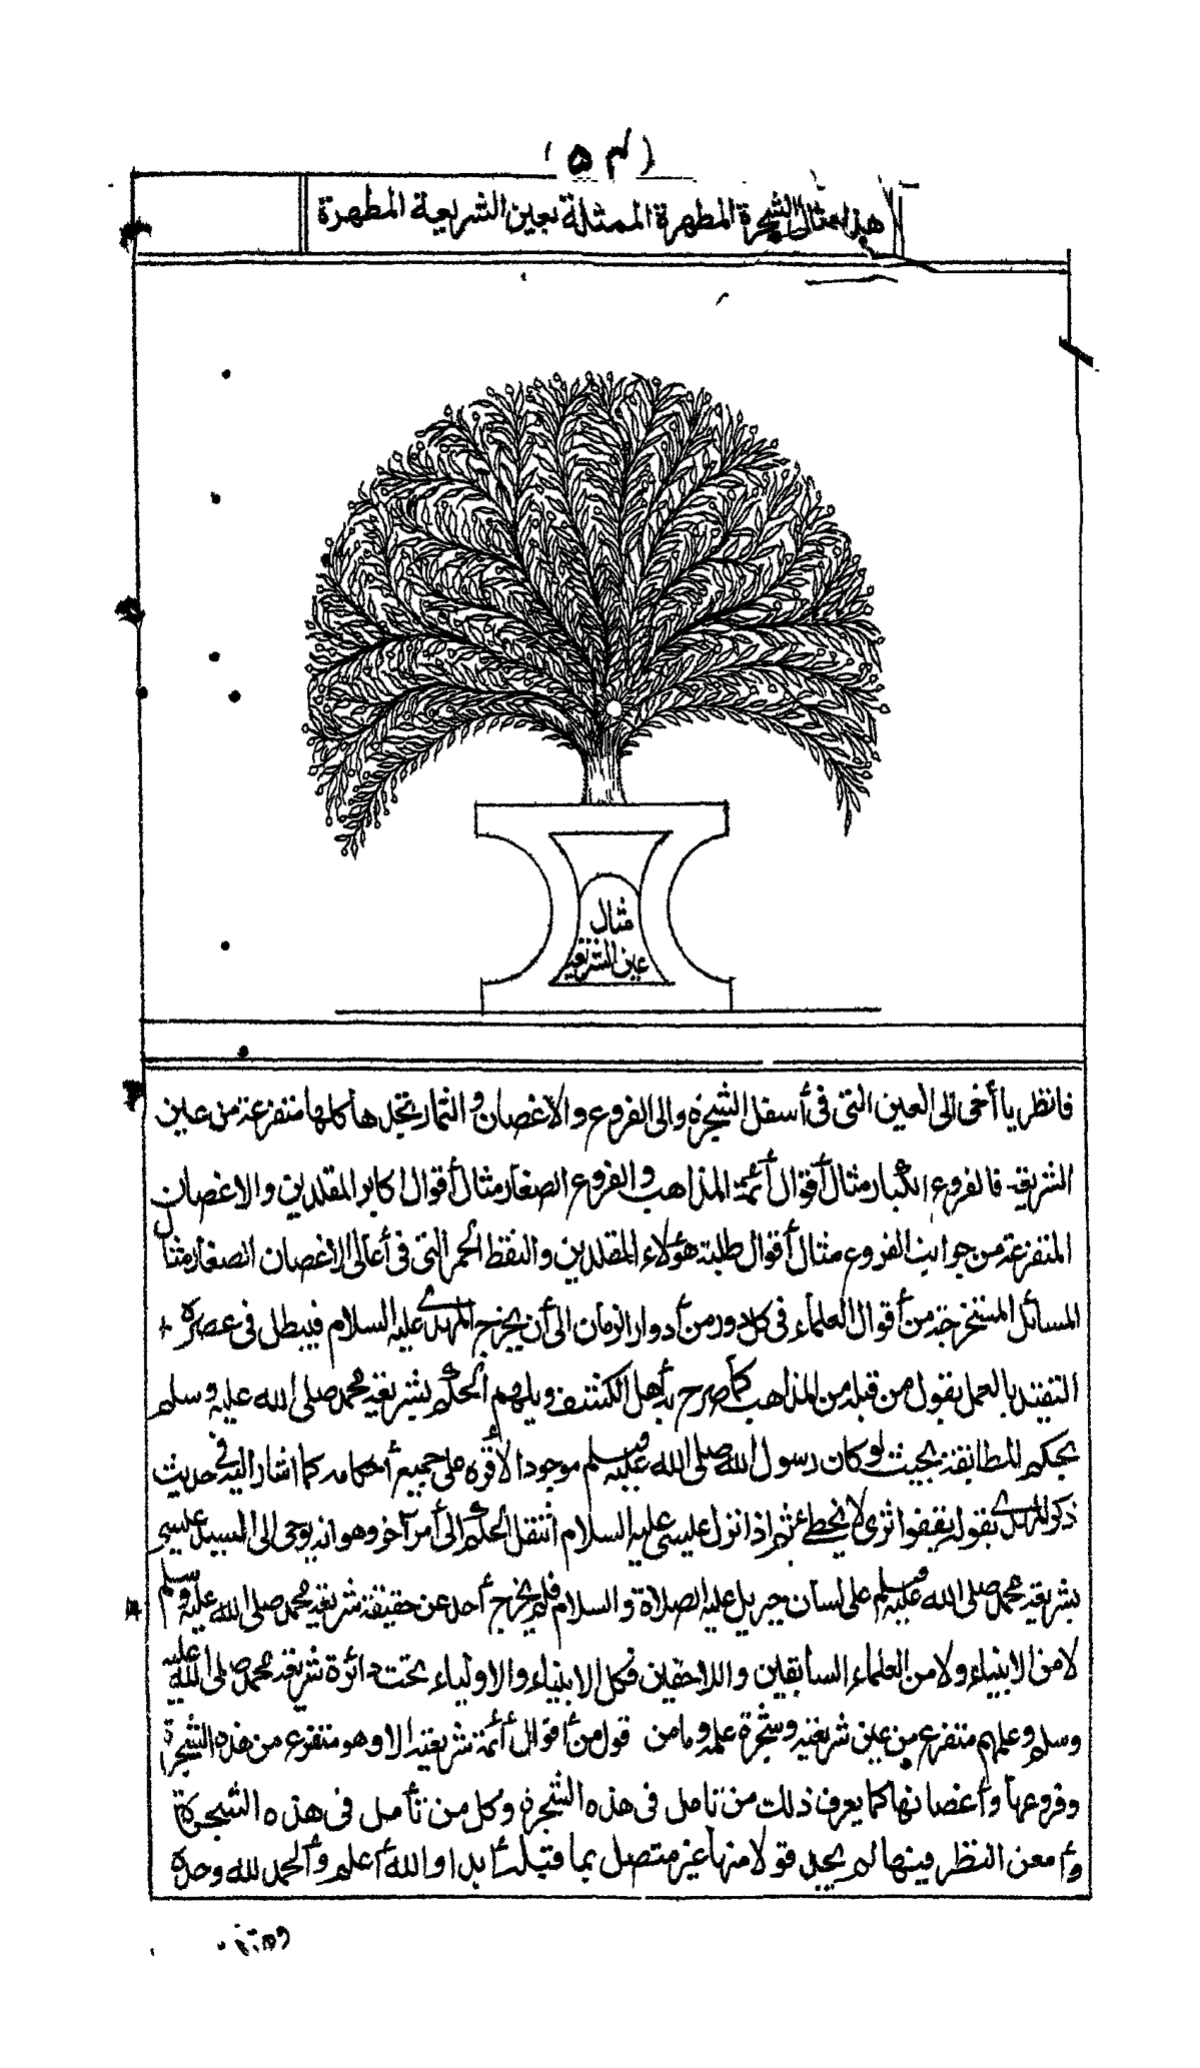 (٥٤)
هذا مثال الشجرة المطهرة الممثلة بعين الشريعة المطهرة
مثال
عين الشريعة
فانظر يا أخى الى العين التى فى أسفل الشجرة والى الفروع والاغصان والثمار تجدها كلها متفرعة من عين
الشريعة فالفروع الكبار مثال أقوال أئمة المذاهب والفروع الصغار مثال أقوال اكابر المقلدين والاغصان
المتفرعة من جوانب الفروع مثال أقوال طلبة هؤلاء المقلدين والنقط الحمر التى فى أعالى الاغصان الصغار مثال
المسائل المستخرجة من أقوال العلماء فى كل دور من أدوار الزمان الى أن يخرج المهدى عليه السلام فيبطل فى عصره
التقيد بالعمل بقول من قبله من المذاهب كما صرح به أهل الكشف ويلهم الحكم بشريعة محمد صلى الله عليه وسلم
بحكم المطابقة بحيث لو كان رسول الله صلى الله عليه وسلم موجودا لأقره على جميع أحكامه كما اشار اليه فى حديث
ذكر المهدى بقوله يقفوا ثرى لا يخطئ ثم اذا نزل عليسى عليه السلام انتقل الحكم الى أمر آخر وهو انه يوحى الى السيد عيسى
بشريعة محمد صلى الله عليه وسلم على لسان جبريل عليه الصلاة والسلام فلم يخرج أحد عن حقيقة شريعة محمد صلى الله عليه وسلم
لا من الانبياء ولا من العلماء السابقين واللاحقين فكل الانبياء والاولياء تحت دائرة شريعة محمد صلى الله عليه
وسلم وعلمهم متفرع من عين شريعته وشجرة علمه وما من قول من أقوال أئمة شريعته الا وهو متفرع من هذه الشجرة
وفروعها وأغصانها كما يعرف ذلك من تامل فى هذه الشجرة وكل من تأمل فى هذه الشجرة
وأمعن النظر فيها لم يجد قولا منها غير متصل بما قبله أبدا والله أعلم والحمد لله وحده